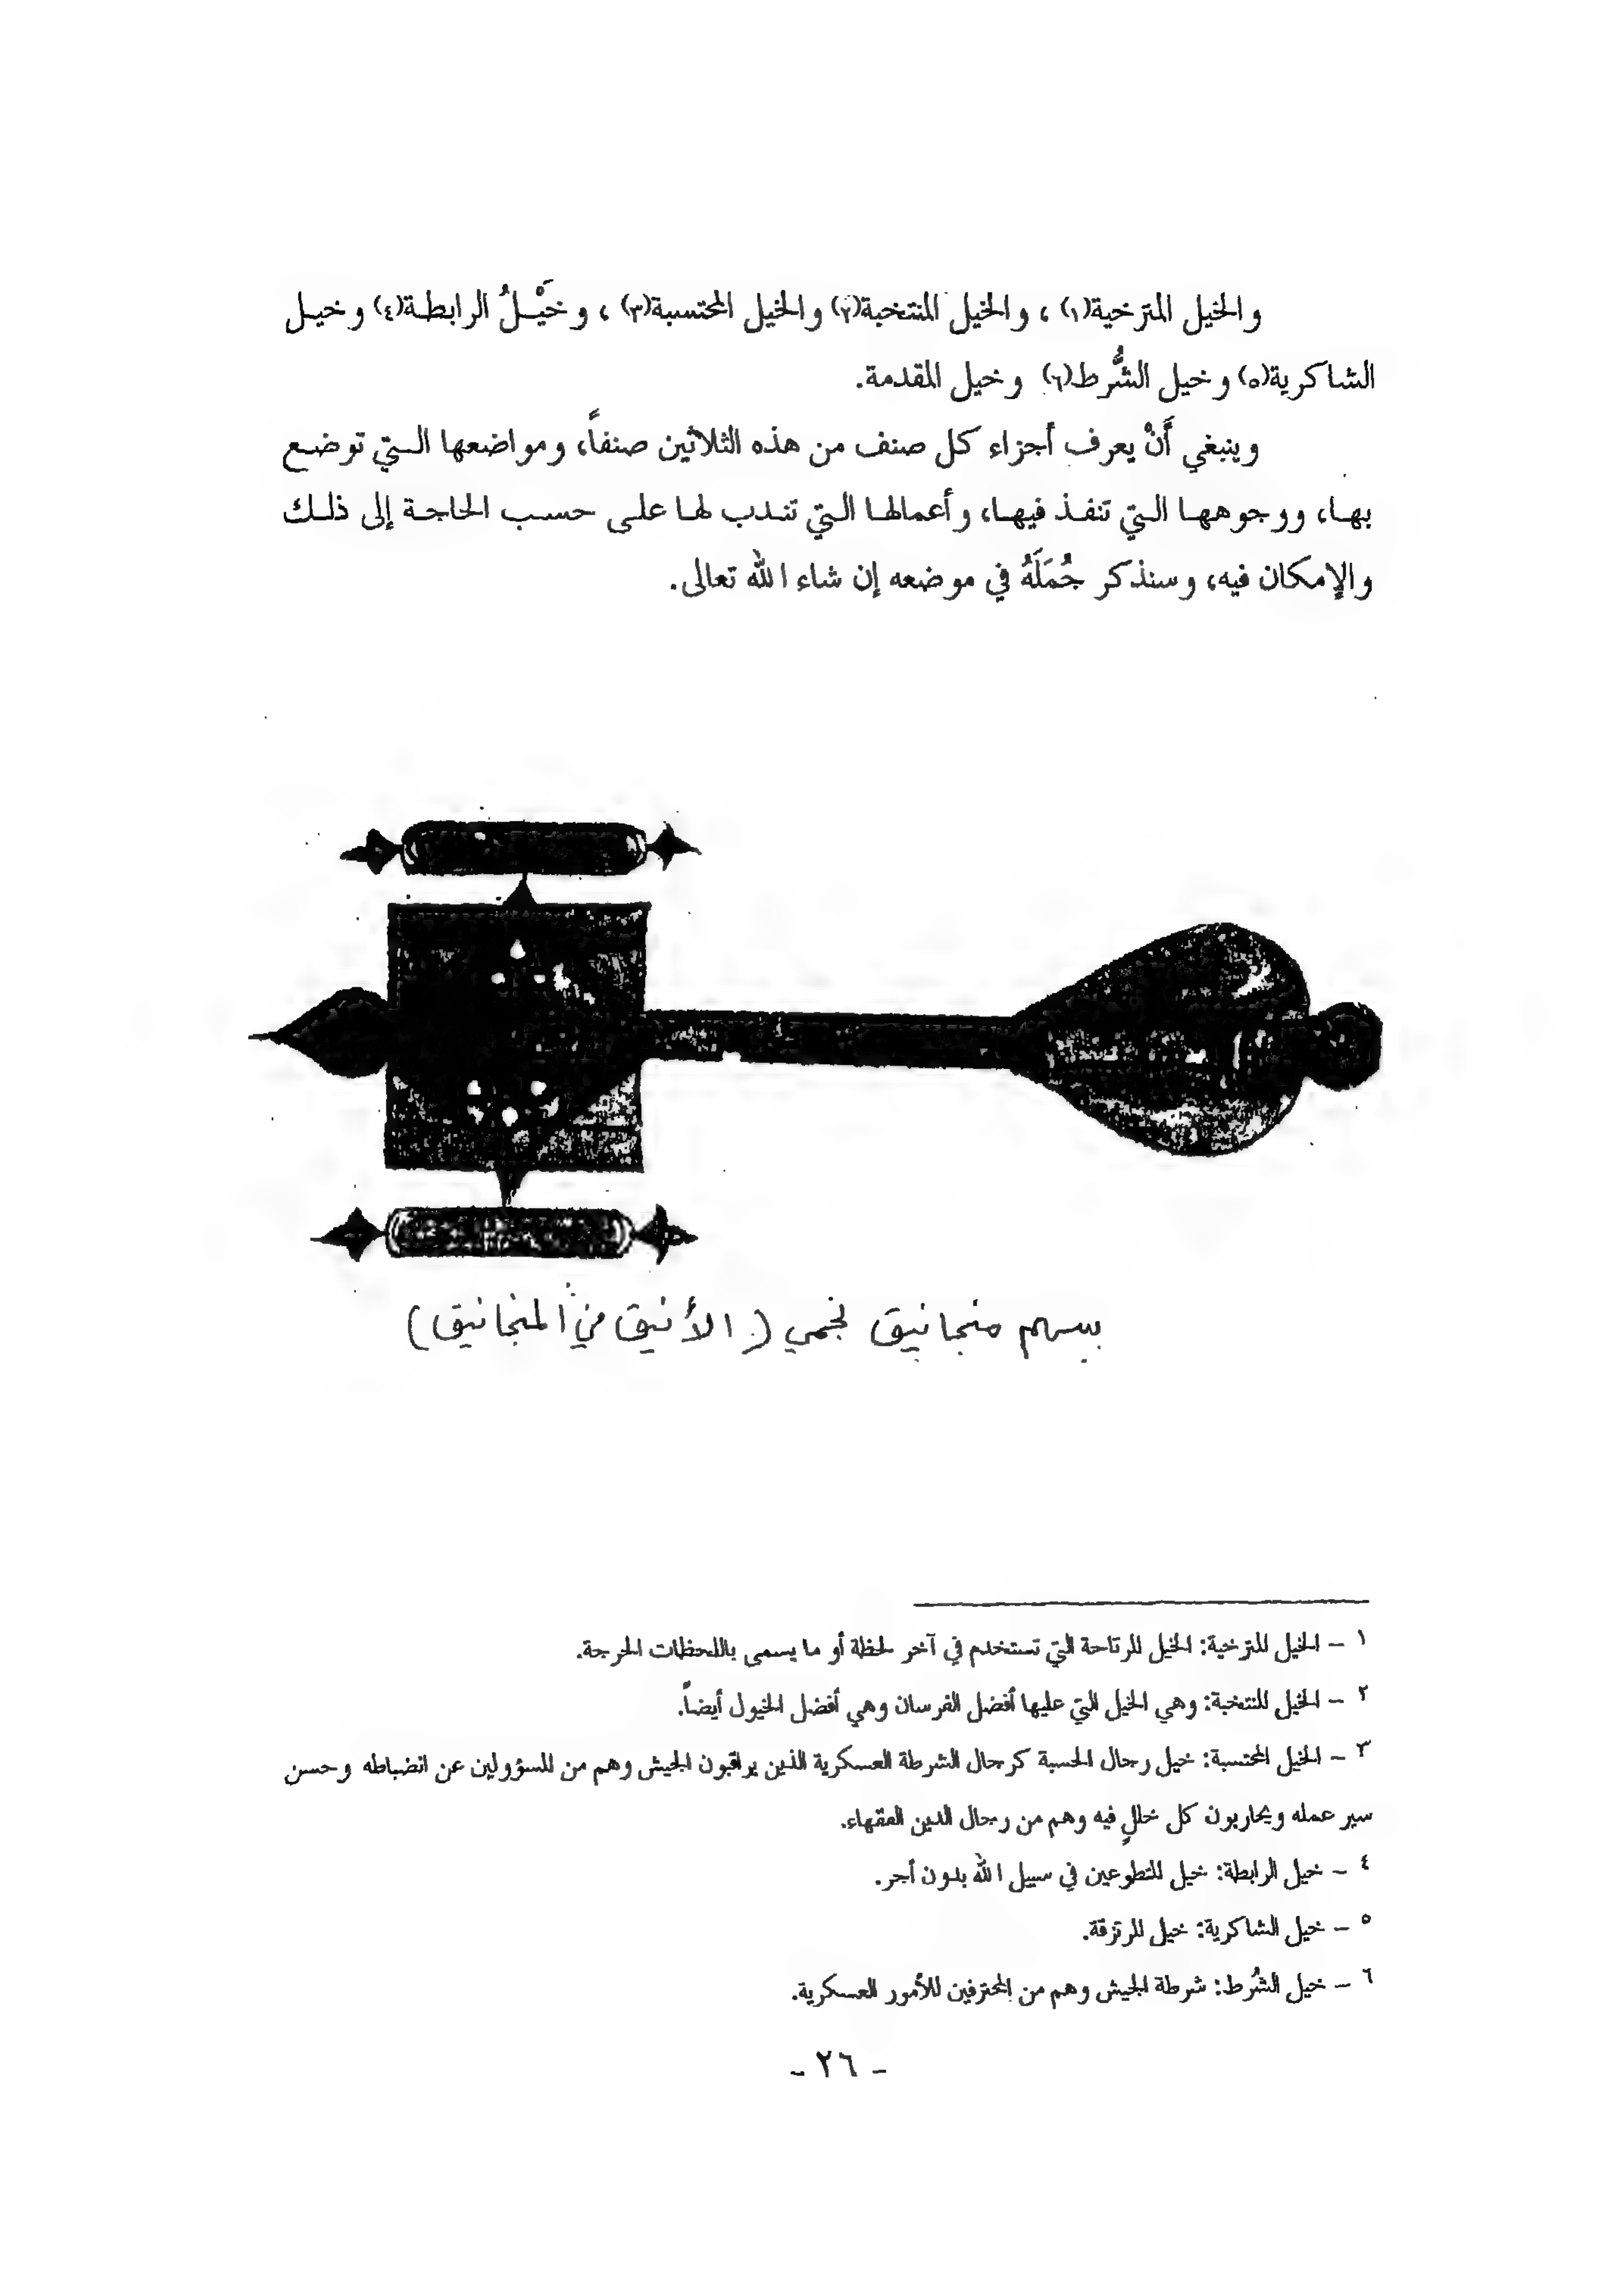 والخيل المترخية(١) ، والخيل المنتخبة(٢) والخيل المحتسبة(٣) ، وخَيْـلُ الرابطـة(٤) وخيـل
الشاكرية(٥) وخيل الشُّرط(٦) وخيل المقدمة.
وينبغي أَنْ يعرف أجزاء كل صنف من هذه الثلاثين صنفاً، ومواضعها الـتي توضـع
بهـا، ووجوههـا الـتي تنفـذ فيهـا، وأعمالهـا الـتي تنـدب لهـا علـى حسـب الحاجـة إلى ذلـك
والإمكان فيه، وسنذكر جُمَلَهُ في موضعه إن شاء الله تعالى.
سهم منجانيق نجمي (الأنيق في المنجانيق)
١ – الخيل المترخية: الخيل المرتاحة التي تستخدم في آخر لحظة أو ما يسمى باللحظات الحرجة.
٢ – الخيل المنتخبة: وهي الخيل التي عليها أفضل الفرسان وهي أفضل الخيول أيضاً.
٣ – الخيل المحتسبة: خيل رجال الحسبة كرجال الشرطة العسكرية الذين يراقبون الجيش وهم من المسؤولين عن انضباطه وحسن
سير عمله ويحاربون كل خللٍ فيه وهم من رجال الدين الفقهاء.
٤ – خيل الرابطة: خيل المتطوعين في سبيل الله بدون أجر.
٥ – خيل الشاكرية: خيل المرتزقة.
٦ – خيل الشُرط: شرطة الجيش وهم من المحترفين للأمور العسكرية.
- ٢٦ -